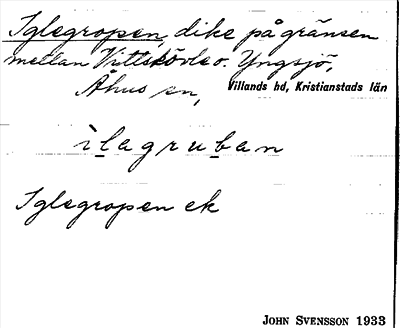 Iglegropen, dike på gränsen
mellan Vittskövle o. Yngsjö,
Åhus sn, Villands hd, Kristianstads län
ìlagruban
Iglegropen ek
JOHN SVENSSON 1933